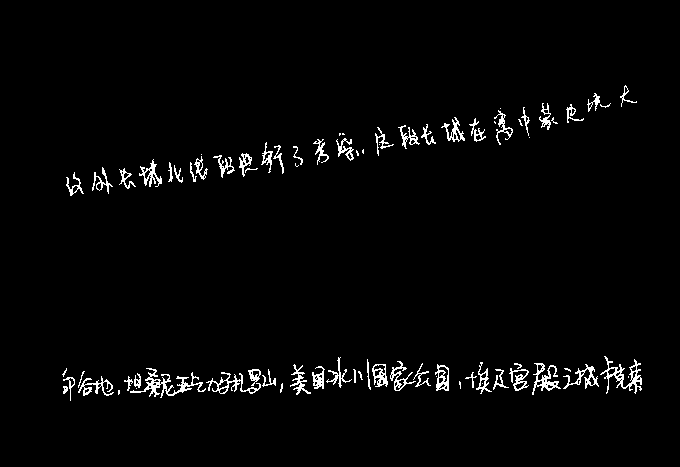 汉外长城北线段进行了考察,这段长城在离中蒙边境大
合地,坦桑尼亚乞力马扎罗山,美国冰川国家公园,埃及宫殿之城卢克索